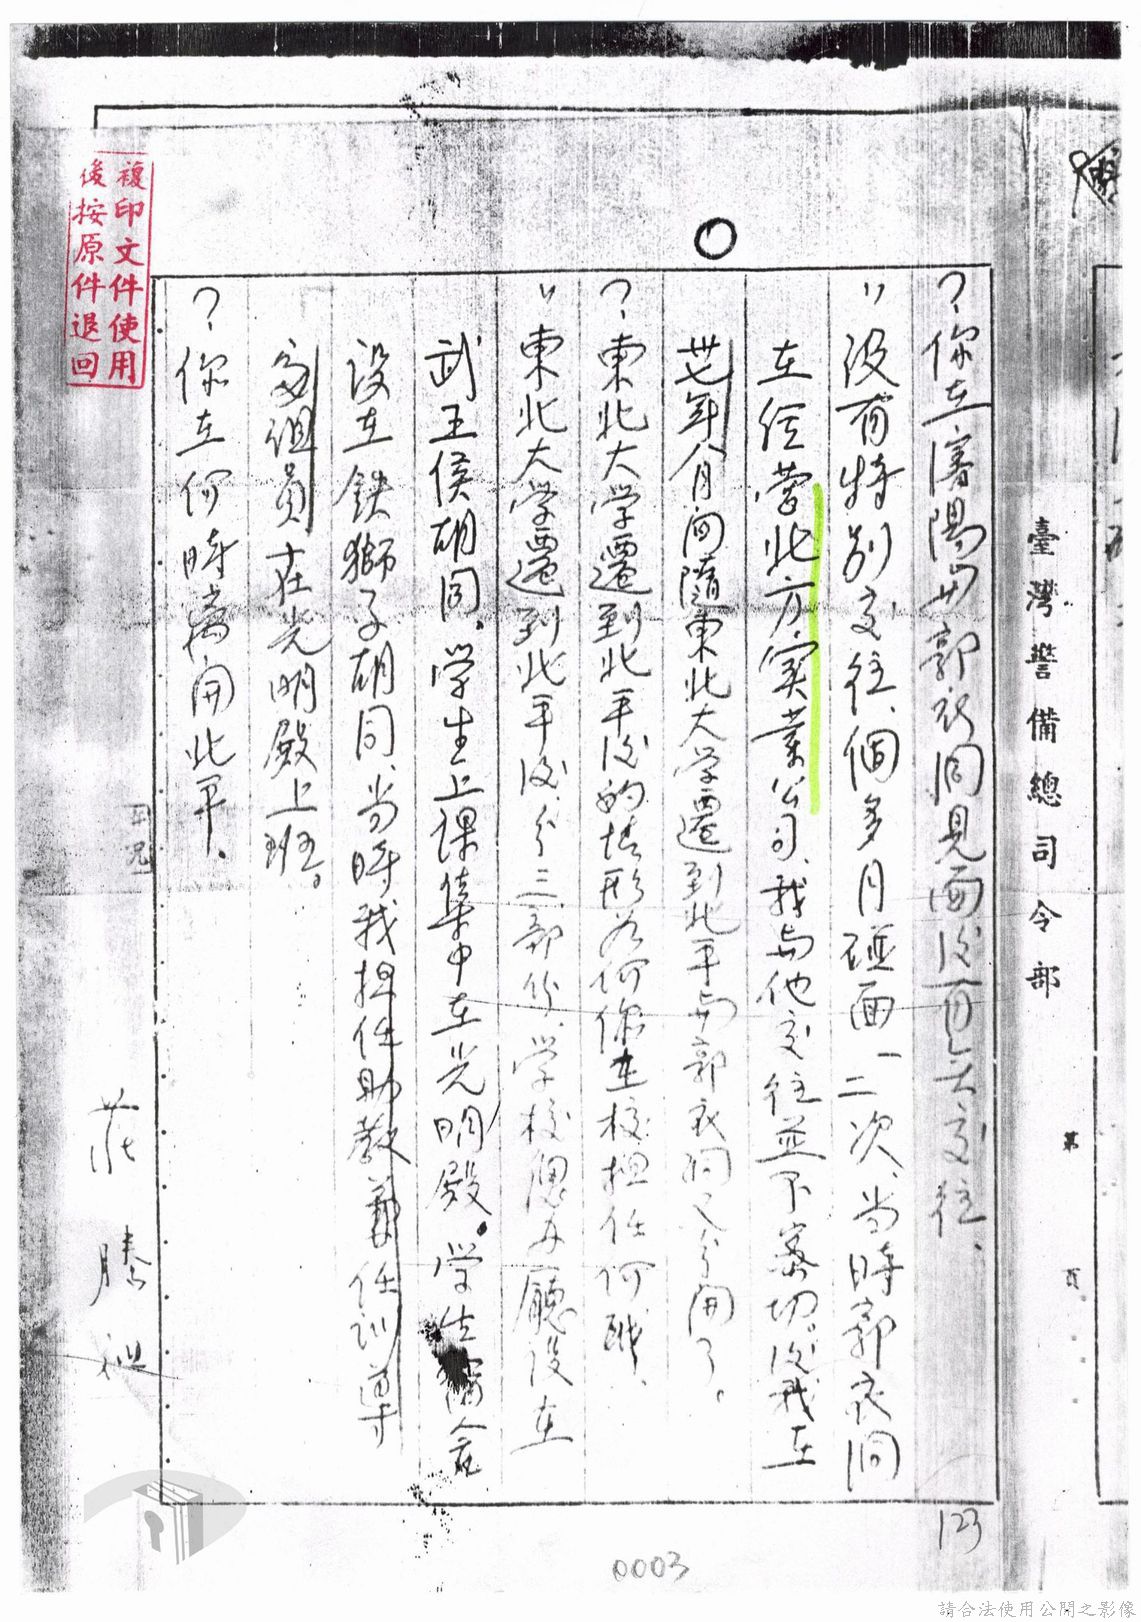 臺灣警備總司令部
第 頁
?你在瀋陽與郭衣洞見面後有無交往、
"沒有特別交往、個多月碰面一二次、当時郭衣洞
在經营北方實業公司、我与他交往並不密切。後我在
卅七年八月间隨東北大学遷到北平與郭衣洞又分開了。
?東北大学遷到北平後的情形为何你在校担任何職、
"東北大学遷到北平後、分三部份、学校辦事廳设在
武王侯胡同。学生上课集中在光明殿。学生宿舍
设在鉄獅子胡同、当時我担任助教兼任训導
處组員在光明殿上班。
?你在何時离開北平。
莊騰
123
0003
複印文件使用
後按原件退回
請合法使用公開之影像